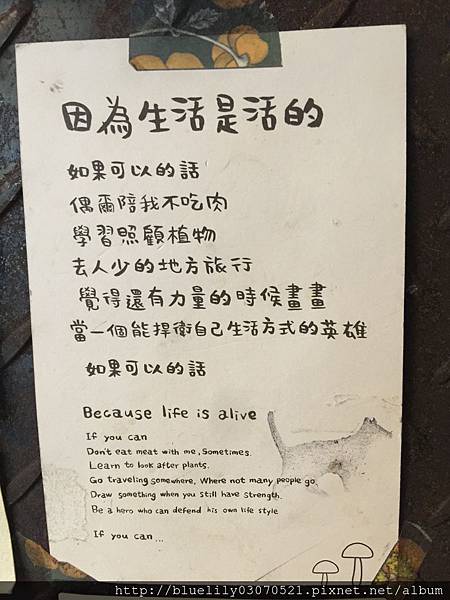 因為生活是活的
如果可以的話
偶爾陪我不吃肉
學習照顧植物
去人少的地方旅行
覺得還有力量的時候畫畫
當一個能捍衛自己生活方式的英雄
如果可以的話
Because life is alive
If you can
Don't eat meat with me, Sometimes.
Learn to look after plants.
Go traveling somewhere, Where not many people go.
Draw something when you still have strength.
Be a hero who can defend his own life style
If you can...
http://bluelily03070521.pixnet.net/album